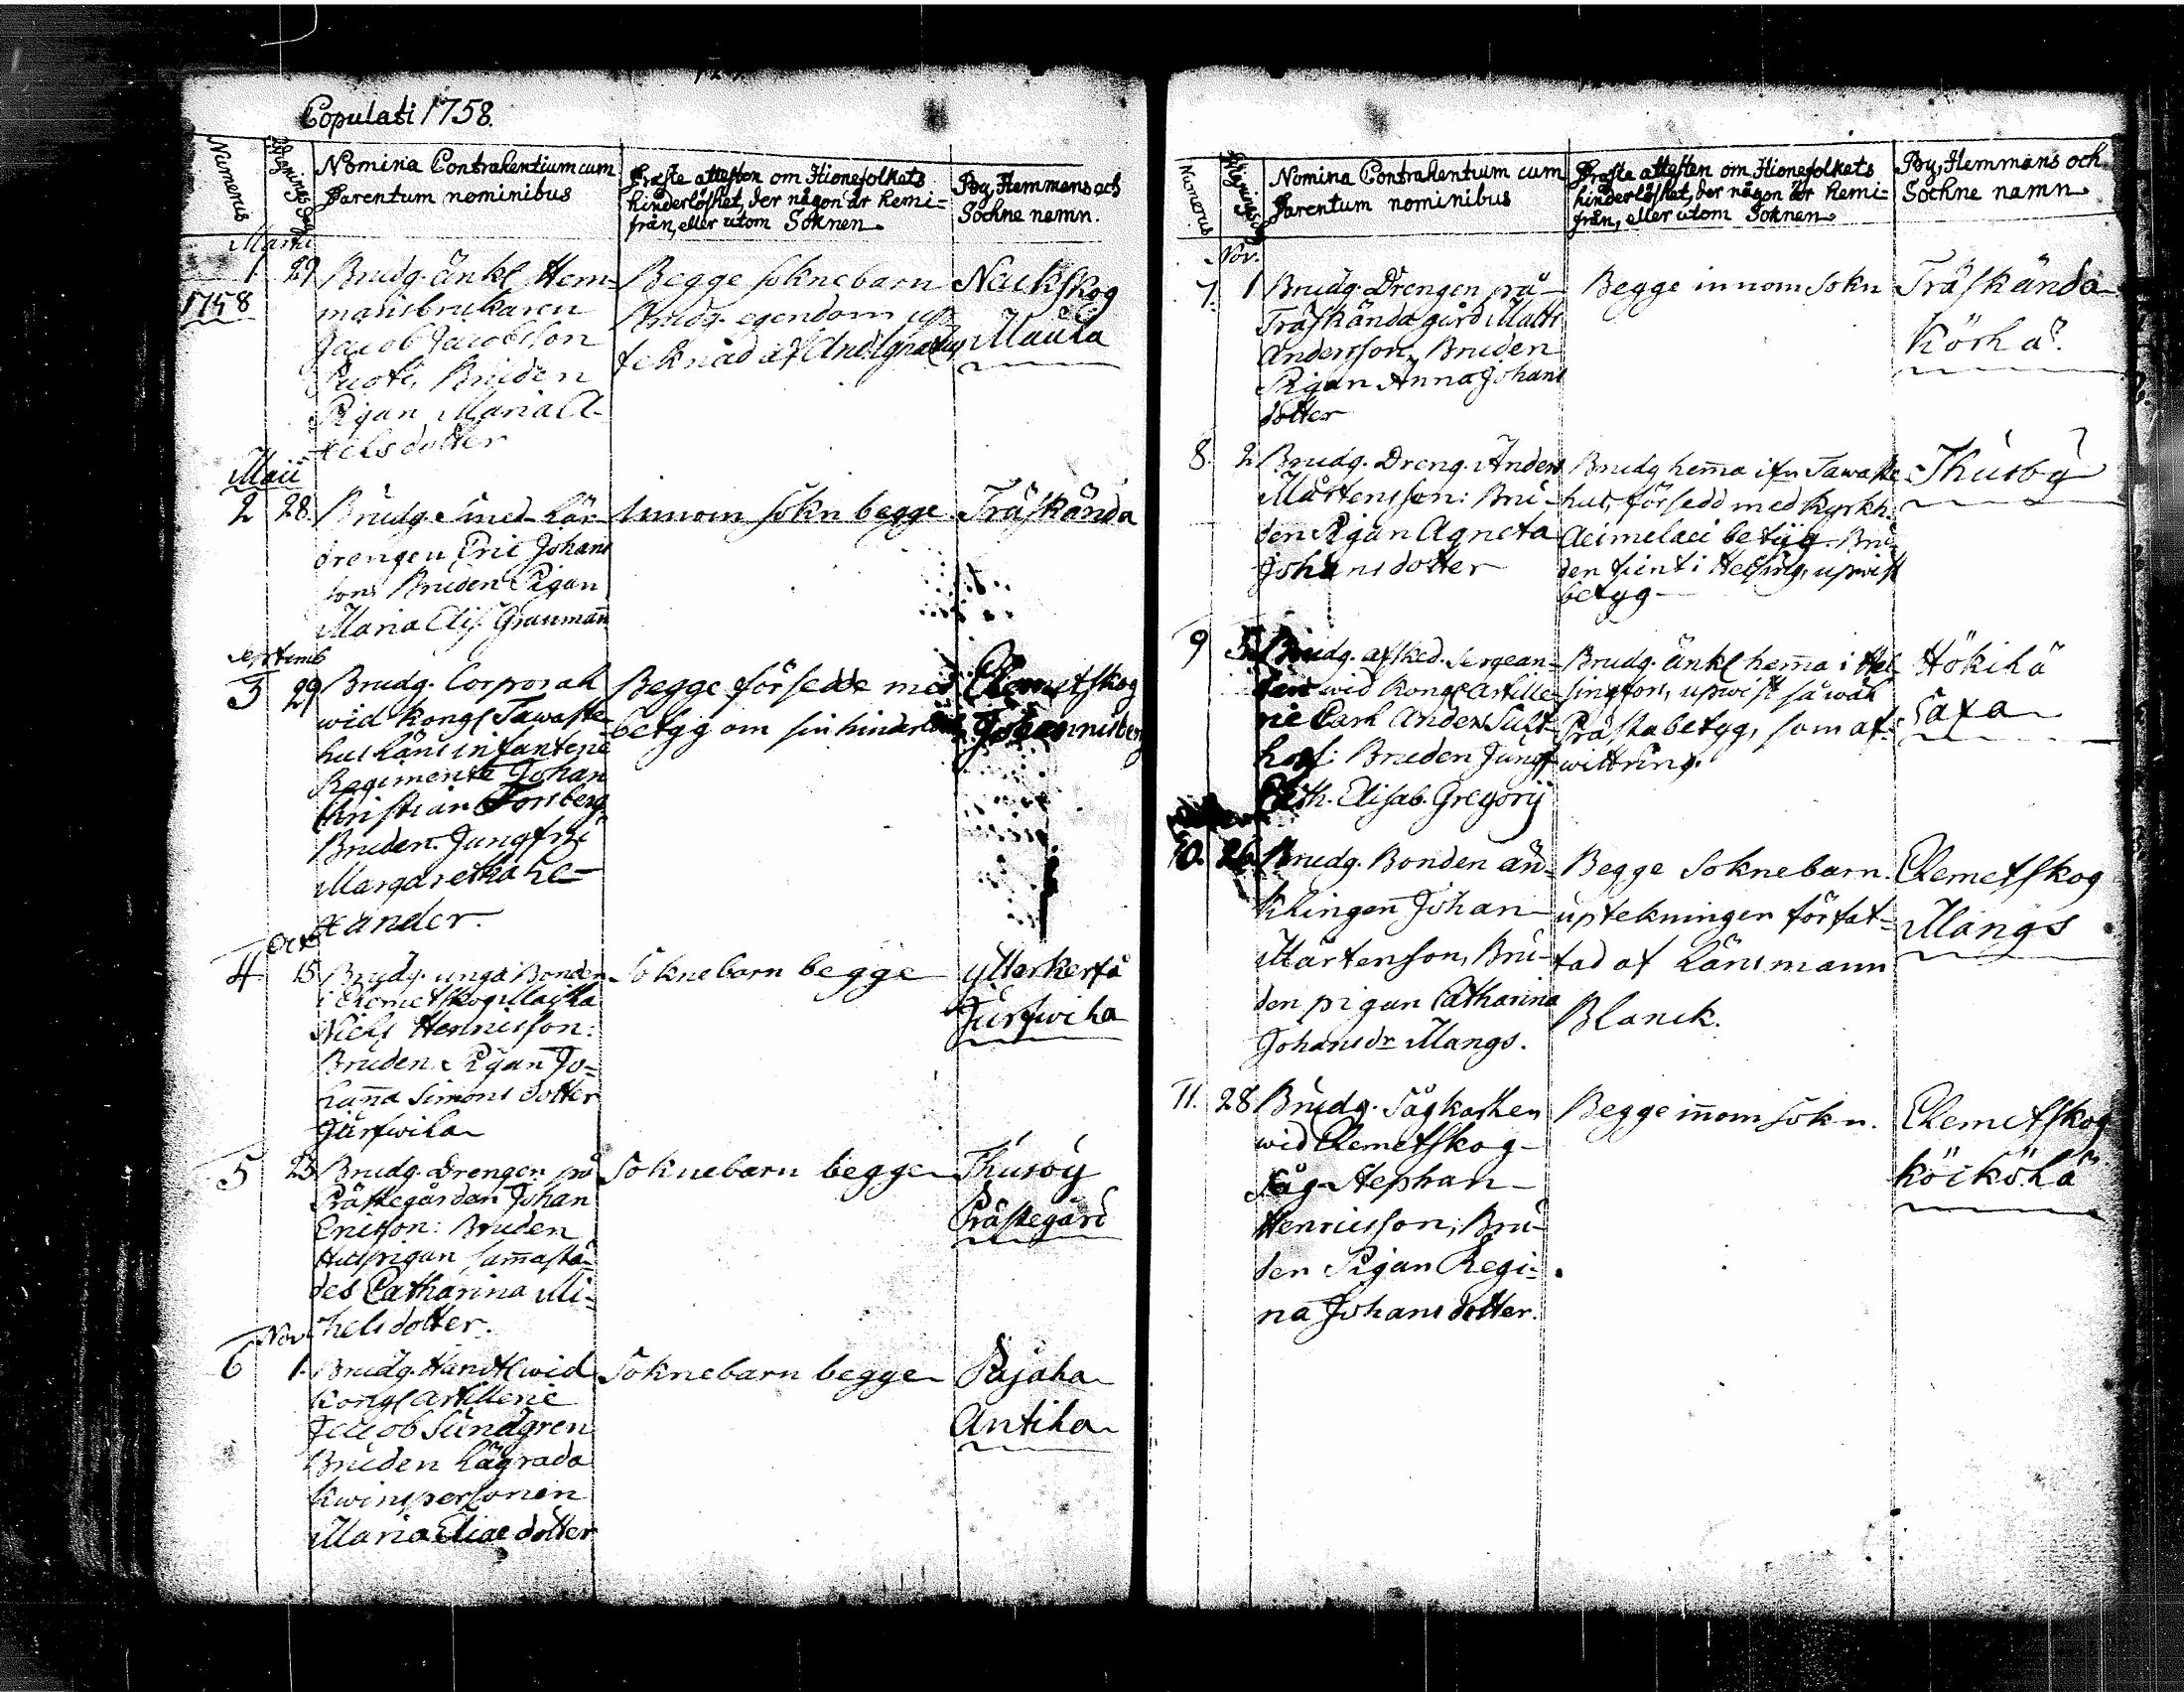 Copulati 1758.
Numerus
Wigningsdag
Nomina Contrahentium cum
Parentum nominibus
Præste attesten om Hionefolkets
hinderlöshet, der någon är hemi-
från, eller utom Soknen
By, Hemmans och
Sochne namn.
Martii
1 29 Brudg. änkl Hem-
1758
mansbrukaren
Jacob Jacobsson
Bruden
Pigan Maria A-
xelsdotter
Begge soknebarn
Brudg. egendom up-
teknad af
Nackskog
Maula
Maii
2 28. Brudg. Smed-Lär-
drengen Eric Johans
son: Bruden Pigan
Maria Elis. Graumañ
Innom sokn begge
Träskända
Septemb
3 29 Brudg. Corporal
wid Kongl Tawaste-
hus Läns infanterie
Regimente Johan
Christian Forsberg
Bruden Jungfru
Margaretha he-
xander.
Begge försedde med
betyg om sin
Clemetskog
Johannisberg
Oct
4 15 Brudg. unga Bonden
i Clemetskog
Nicls Henricsson:
Bruden Pigan Jo-
hanna Simons dotter
Soknebarn begge
ytterkerfå
5 23 Brudg. Drengen på
Prästegården Johan
Ericsson: Bruden
Huspigan sammastä-
des Catharina Mi-
chelsdotter.
Soknebarn begge
Thusby
Prästegård
Nov
6 1. Brudg. Handtl wid
Kongl Artillerie
Jacob Sundgren
Bruden Lägrada
kwinspersonen
Maria Eliæ dotter
Soknebarn begge
Pajala
Antila
Numerus
Nomina Contrahentium cum
Parentum nominibus
Præste attesten om Hionefolkets
hinderlöshet, der någon är hemi-
från, eller utom Soknen
By, Hemmans och
Sochne namn
Nov.
7. 1 Brudg. Drengen på
Träskända gård Matts
Andersson, Bruden
Pigan Anna Johans
dotter
Begge innom sokn
Träskända
8. 2 Brudg. Dreng. Anders
Mårtensson: Bru-
den Pigan Agneta
Johansdotter
Brudg hemma ifr Tawaste
hus, försedd med Kyrkh.
Aeimelaei betyg. Bru-
den tient i Helsing, upwist
betyg
Thusby
9 Brudg. afsked. Sergean-
ten wid Kongl Artille-
rie Carl Anders
Bruden Jungf
Cath. Elisab. Gregorij
Brudg. änkl hemma i Hel
singfors, upwist så wäl
Prästabetyg, som af-
wittring.
Hökilä
Saxa
10. 26 Brudg. Bonden än-
klingen Johan
Mårtenson, Bru-
den pigan Catharina
Johansdr Mangs.
Begge Soknebarn.
uptekningen förfat-
tad af Länsmann
Blanck.
Clemetskog
Mangs
11. 28 Brudg. Sågkarlen
wid Clemetskog
Såg Stephan
Henricsson; Bru-
den Pigan Regi-
na Johansdotter.
Begge innom sokn.
Clemetskog